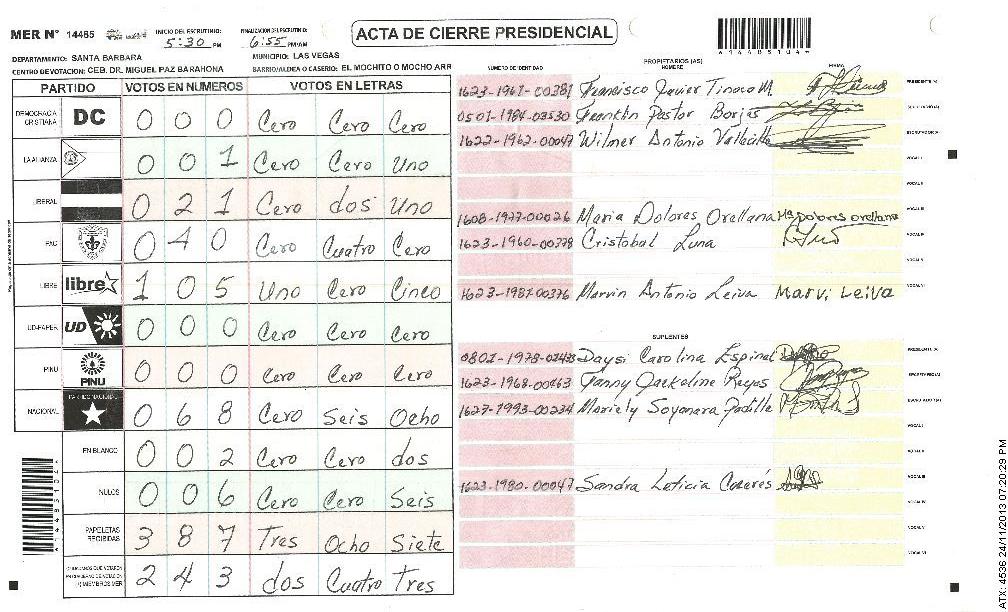 MER N° 14485 INICIO DEL ESCRUTINIO: 5:30 PM FINALIZACION DEL ESCRUTINIO: 6:55 PM/AM
ACTA DE CIERRE PRESIDENCIAL
DEPARTAMENTO: SANTA BARBARA MUNICIPIO: LAS VEGAS
CENTRO DE VOTACION: CEB. DR. MIGUEL PAZ BARAHONA BARRIO/ALDEA O CASERIO: EL MOCHITO O MOCHO ARR
PARTIDO VOTOS EN NUMEROS VOTOS EN LETRAS
DEMOCRACIA CRISTIANA DC 0 0 0 Cero Cero Cero
LA ALIANZA 0 0 1 Cero Cero Uno
LIBERAL 0 2 1 Cero dos Uno
PAC 0 4 0 Cero Cuatro Cero
LIBRE libre 1 0 5 Uno Cero Cinco
UD-PAPER UD 0 0 0 Cero Cero Cero
PINU PINU 0 0 0 Cero Cero Cero
NACIONAL PARTIDO NACIONAL 0 6 8 Cero Seis Ocho
EN BLANCO 0 0 2 Cero Cero dos
NULOS 0 0 6 Cero Cero Seis
PAPELETAS RECIBIDAS 3 8 7 Tres Ocho Siete
CIUDADANOS QUE VOTARON 2 4 3 dos Cuatro Tres
NUMERO DE IDENTIDAD PROPIETARIOS (AS) NOMBRE FIRMA
1623-1961-00381 Francisco Javier Tinoco M. PRESIDENTE (A)
0501-1984-03530 Franklin Pastor Borjas SECRETARIO (A)
1622-1962-00047 Wilmer Antonio ESCRUTADOR (A)
VOCAL I
VOCAL II
1608-1977-00026 Maria Dolores Orellana Mª Dolores Orellana VOCAL III
1623-1960-00378 Cristobal Luna VOCAL IV
VOCAL V
1623-1987-00376 Marvin Antonio Leiva Marvi Leiva VOCAL VI
SUPLENTES
0801-1978- Daysi Carolina Espinal PRESIDENTE (A)
1623-1968-00463 Fanny Jackeline Reyes SECRETARIO (A)
1627-1993-00234 Mariely Soyanara Padilla ESCRUTADOR (A)
VOCAL I
VOCAL II
1623-1980-00047 Sandra Leticia VOCAL III
VOCAL IV
VOCAL V
VOCAL VI
ATX: 4536 24/11/2013 07:20:29 PM